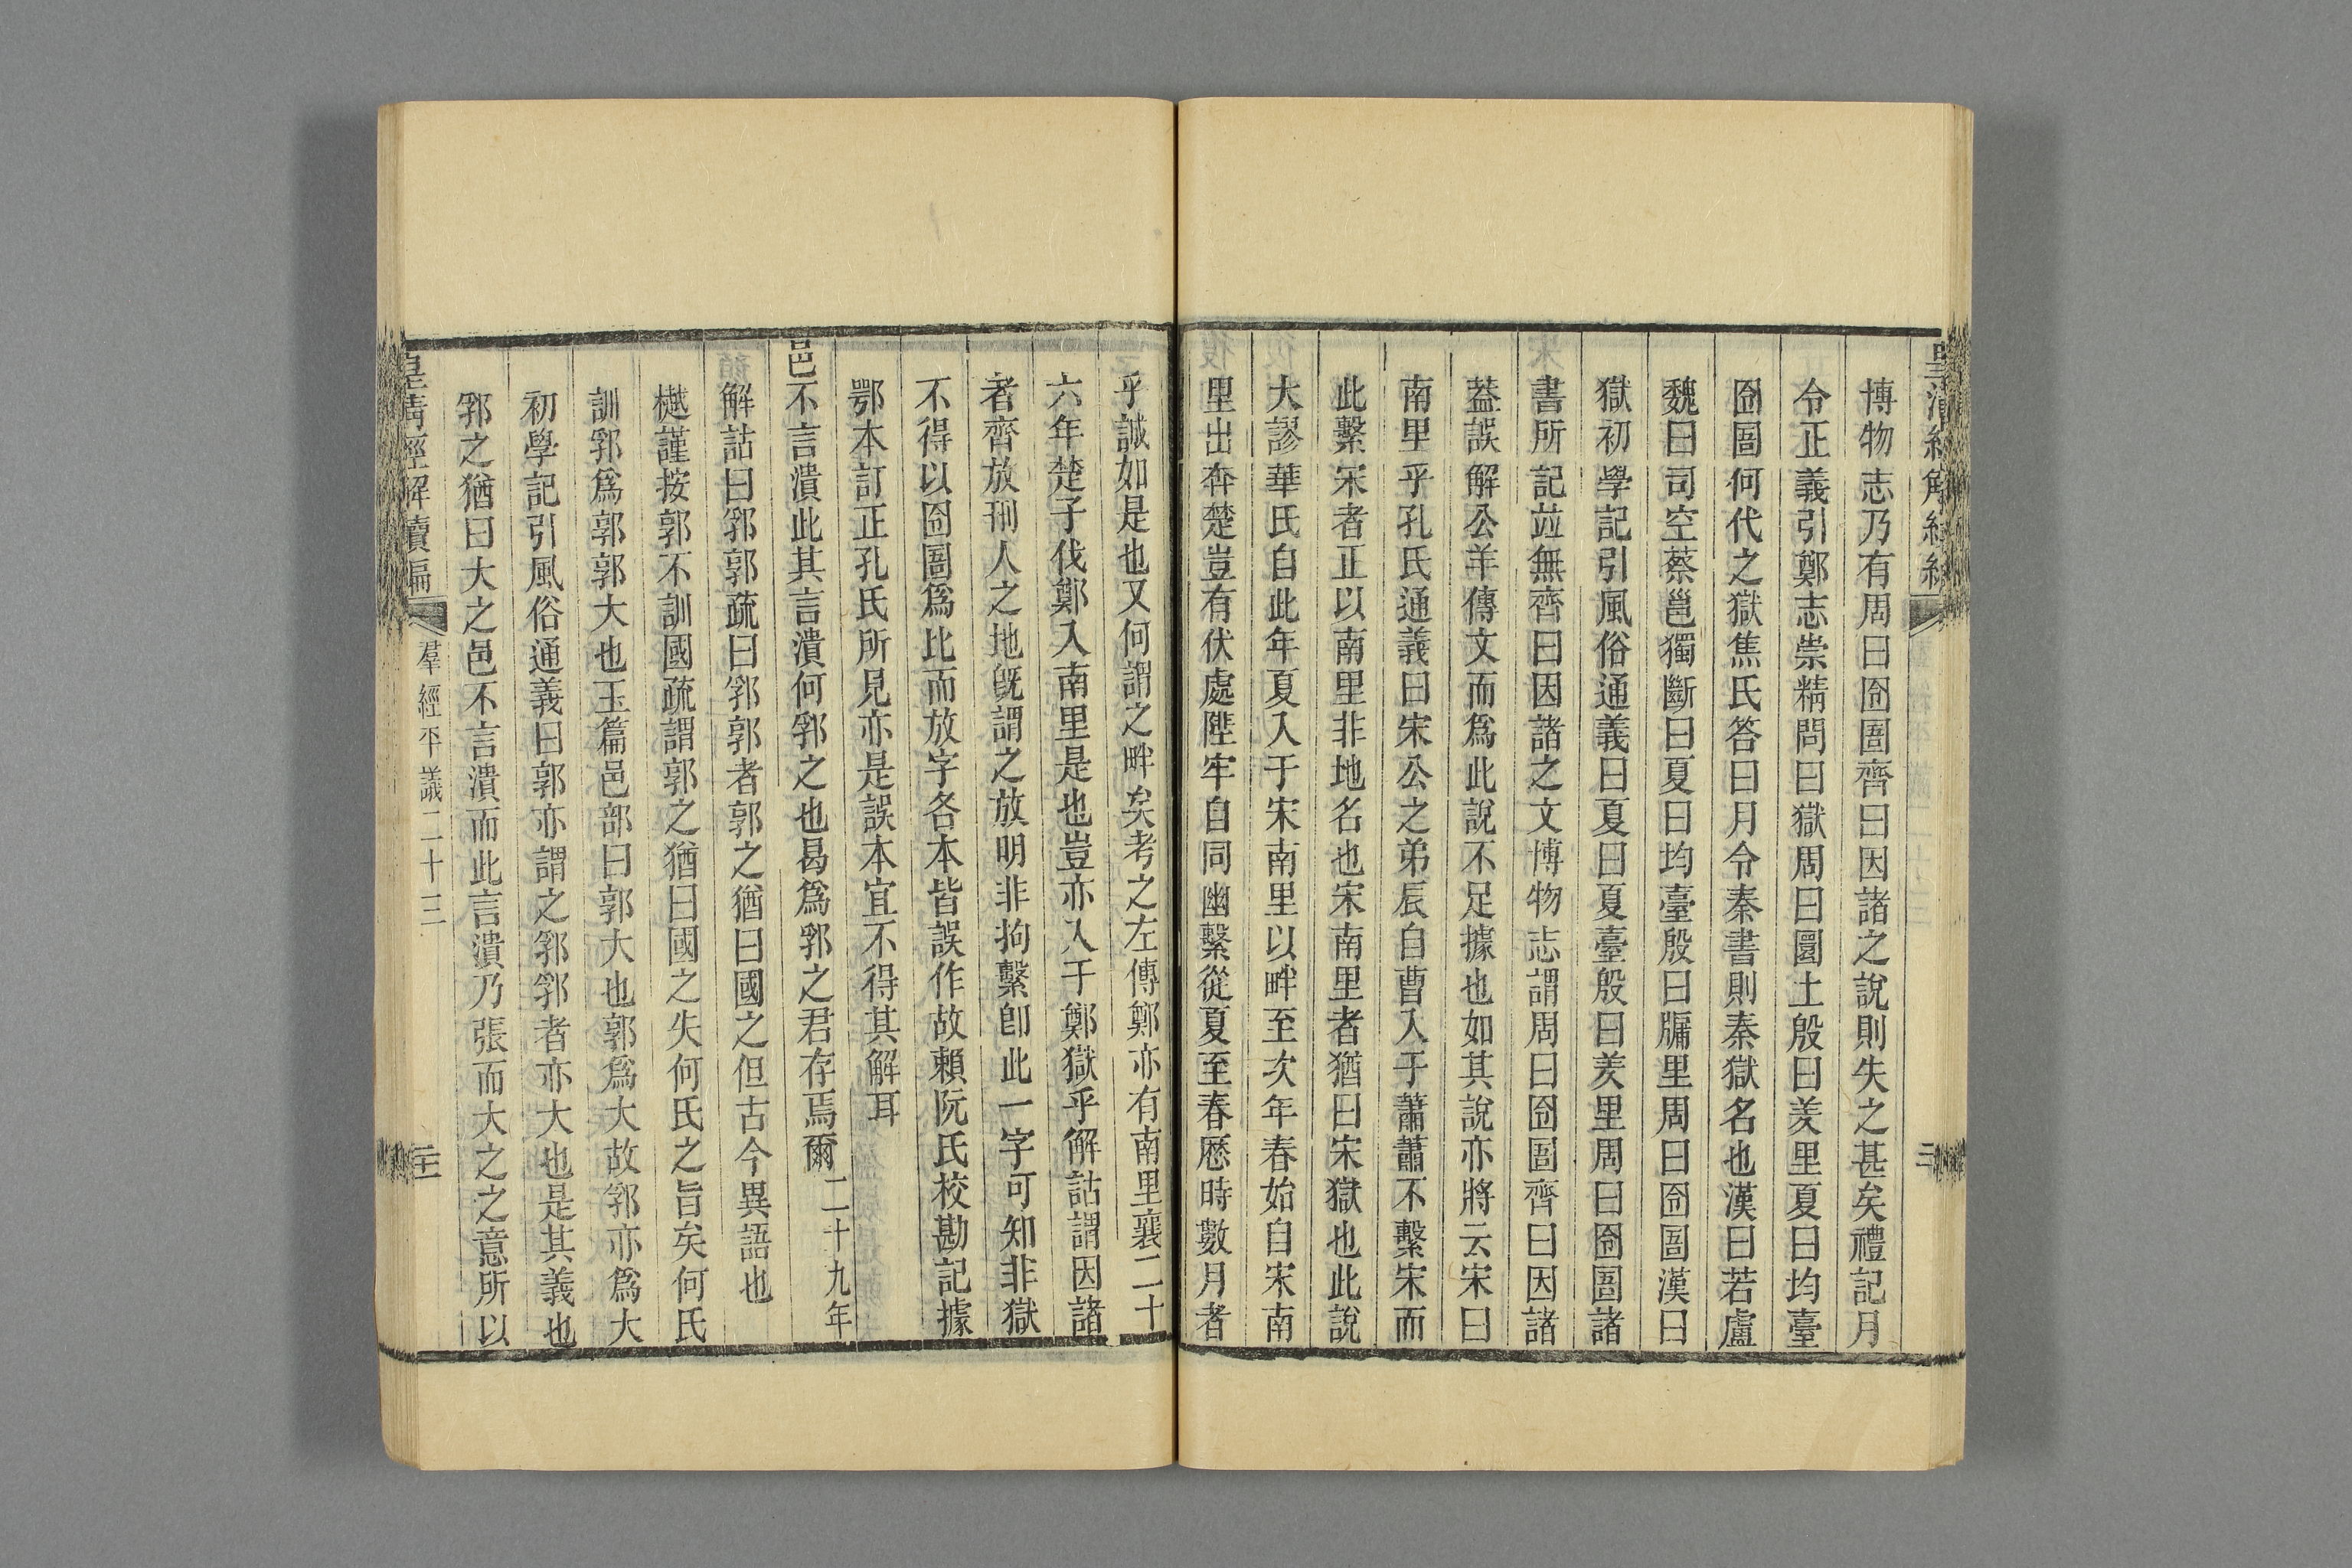 博物志乃有周曰囹圄齊曰因諸之說則失之甚矣禮記月
令正義引鄭志崇精問曰獄周曰圜土殷曰羑里夏曰均臺
囹圄何代之獄焦氏答曰月令秦書則秦獄名也漢曰若盧
魏曰司空蔡邕獨斷曰夏曰均臺殷曰牖里周曰囹圄漢曰
獄初學記引風俗通義曰夏曰夏臺殷曰羑里周曰囹圄諸
書所記竝無齊曰因諸之文博物志謂周曰囹圄齊曰因諸
葢誤解公羊傳文而爲此說不足據也如其說亦將云宋曰
南里乎孔氏通義曰宋公之弟辰自曹入于蕭蕭不繫宋而
此繫宋者正以南里非地名也宋南里者猶曰宋獄也此說
大謬華氏自此年夏入于宋南里以畔至次年春始自宋南
里出奔楚豈有伏處陛牢自同幽繫從夏至春歷時數月者
乎誠如是也又何謂之畔矣考之左傳鄭亦有南里襄二十
六年楚子伐鄭入南里是也豈亦入于鄭獄乎解詁謂因諸
者齊放刑人之地旣謂之放明非拘繫卽此一字可知非獄
不得以囹圄爲比而放字各本皆誤作故賴阮氏校勘記據
鄂本訂正孔氏所見亦是誤本宜不得其解耳
邑不言潰此其言潰何郛之也曷爲郛之君存焉爾 二十九年
解詁曰郛郭疏曰郛郭者郭之猶曰國之但古今異語也
樾謹按郭不訓國疏謂郭之猶曰國之失何氏之旨矣何氏
訓郛爲郭郭大也玉篇邑部曰郭大也郭爲大故郛亦爲大
初學記引風俗通義曰郭亦謂之郛郛者亦大也是其義也
郛之猶曰大之邑不言潰而此言潰乃張而大之之意所以
皇清經解續編 羣經平議二十三